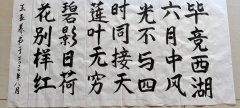 毕竟西湖
六月中风
光不与四
时同接天
莲叶无穷
碧影日荷
花别样红